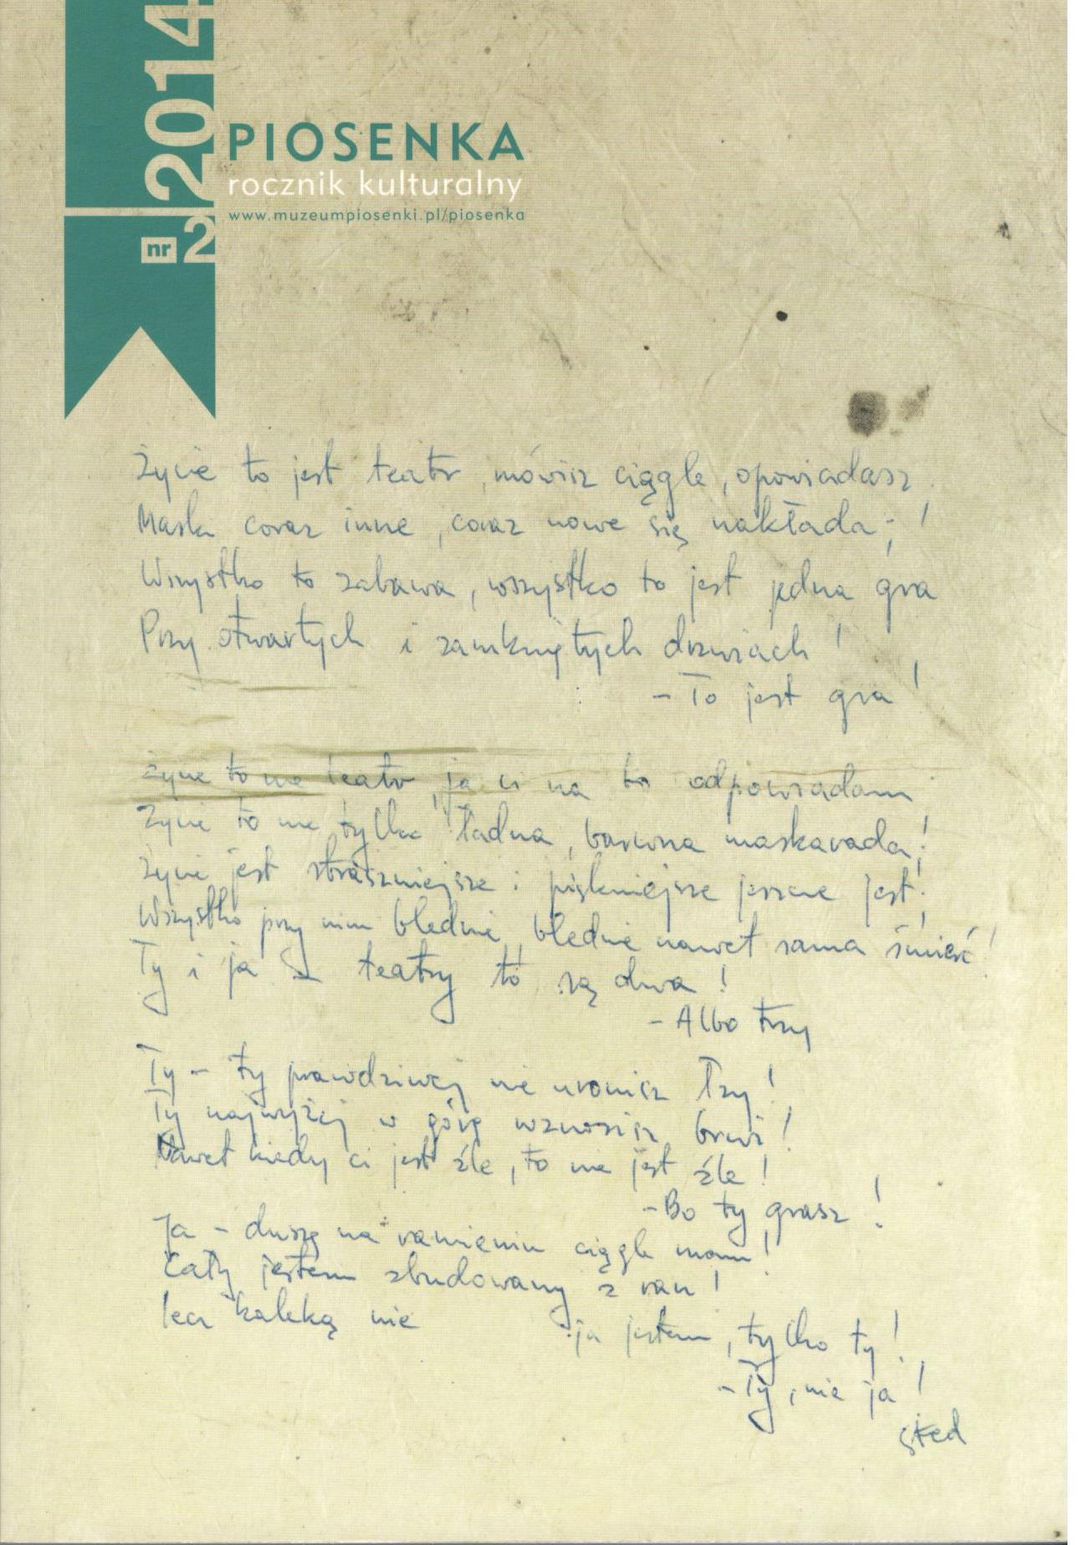 2014
nr 2
PIOSENKA
rocznik kulturalny
www.muzeumpiosenki.pl/piosenka
Życie to jest teatr, mówisz ciągle, opowiadasz
Maski coraz inne, coraz nowe się nakłada;!
Wszystko to zabawa, wszystko to jest jedna gra
Przy otwartych i zamkniętych drzwiach!
- To jest gra!
Życie to nie teatr, ja ci na to odpowiadam
Życie to nie tylko ładna, barwna maskarada;!
Życie jest straszniejsze i piękniejsze jeszcze jest;
Wszystko przy nim blednie, blednie nawet sama śmierć!
Ty i ja - teatry to są dwa!
- Albo trzy
Ty - ty prawdziwej nie uronisz łzy!
Ty najwyżej w górę wznosisz brwi!
Nawet kiedy ci jest źle, to nie jest źle!
- Bo ty grasz!
Ja - duszę na ramieniu ciągle mam!
Cały jestem zbudowany z ran!
lecz kaleką nie ja jestem, tylko ty!
- Ty, nie ja!
sted